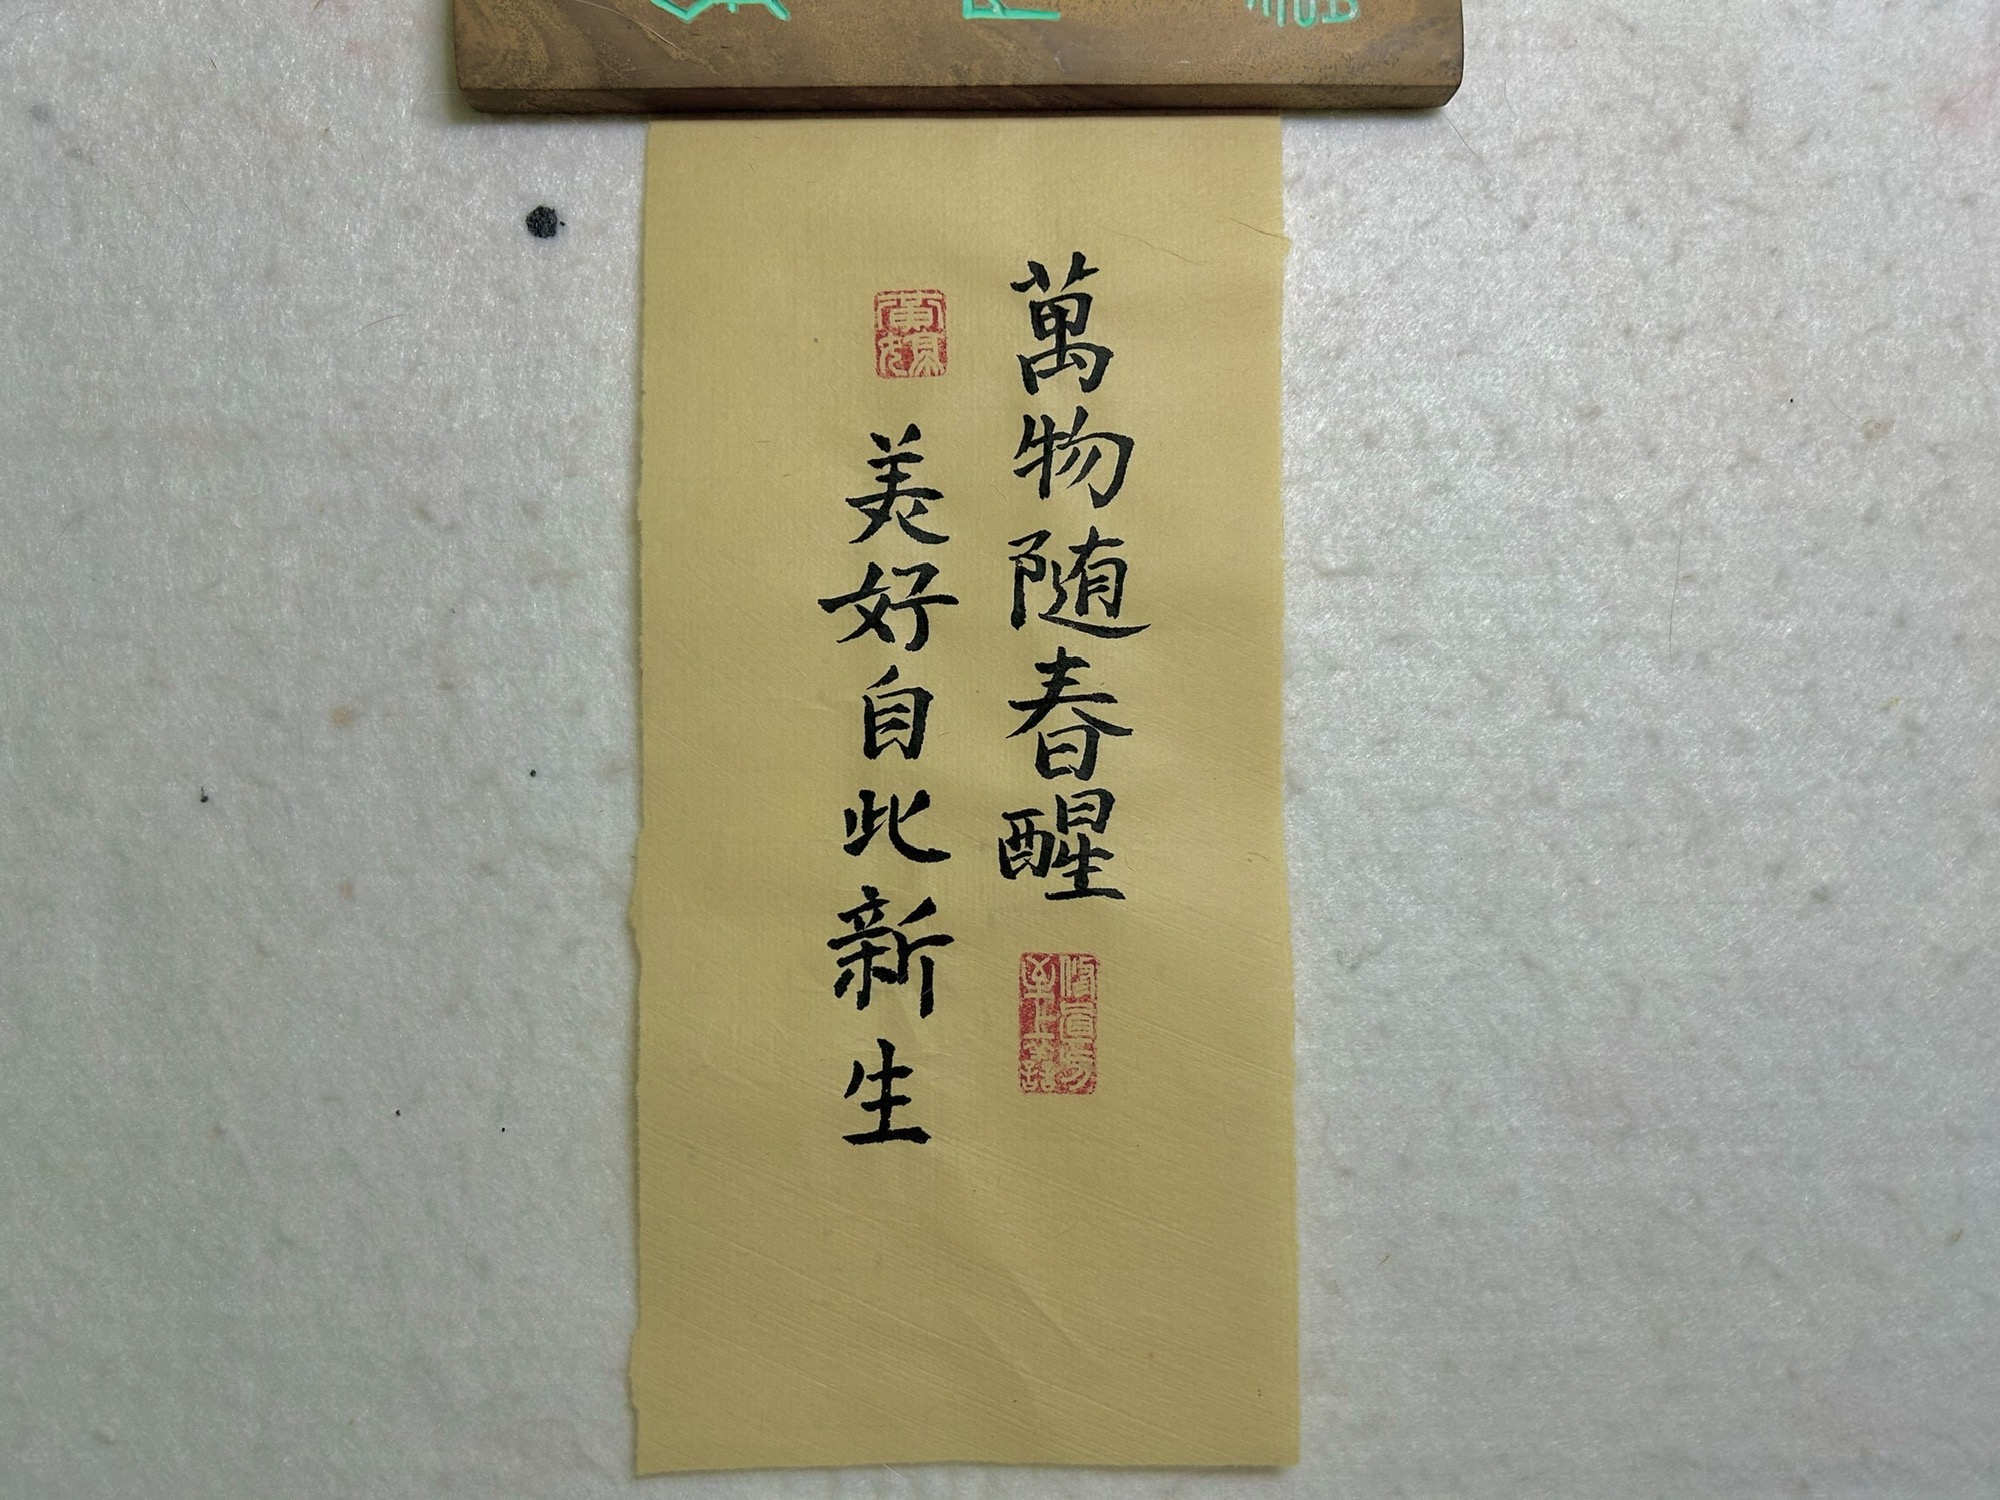 萬物随春醒
美好自此新生